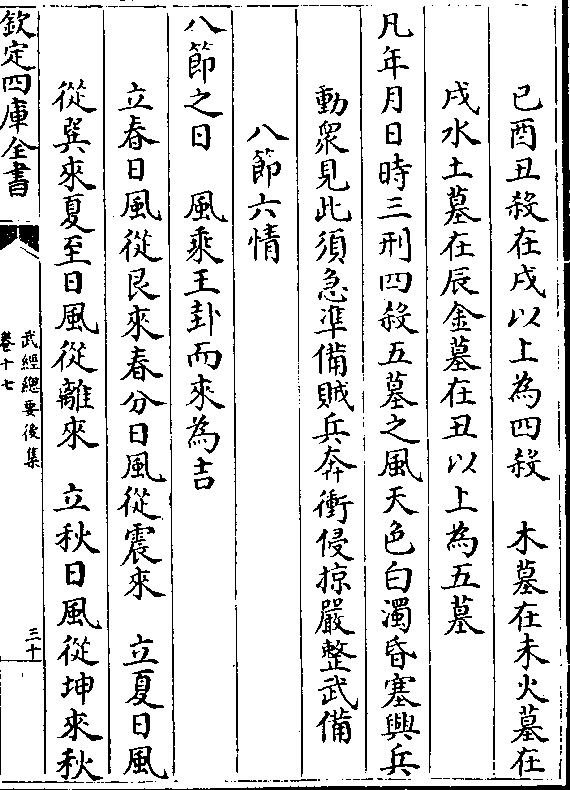 巳酉丑殺在戌以上為四殺　木墓在未火墓在
戌水土墓在辰金墓在丑以上為五墓
凡年月日時三刑四殺五墓之風天色白濁昏塞興兵
動衆見此須急準備賊兵奔衝侵掠嚴整武備
八節六情
八節之日　風乘王卦而來為吉
立春日風從艮來春分日風從震來　立夏日風
從巽來夏至日風從離來　立秋日風從坤來秋
欽定四庫全書
武經總要後集
卷十七
三十